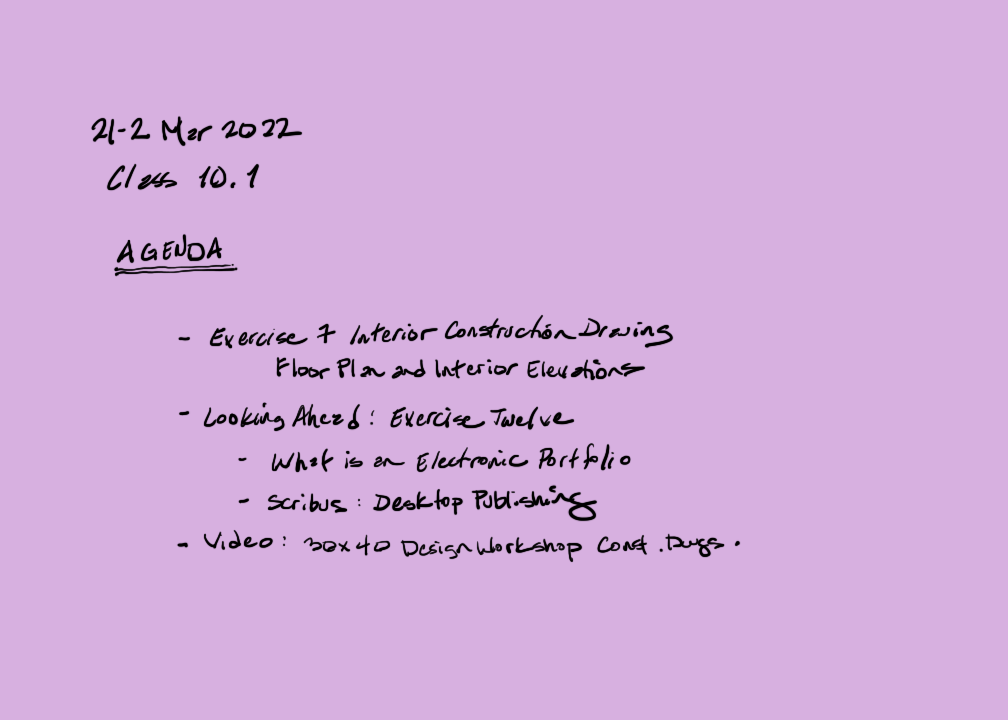 21-2 Mar 2022
Class 10.1
AGENDA
- Exercise 7 Interior Construction Drawing
Floor Plan and Interior Elevations
- Looking Ahead: Exercise Twelve
- What is an Electronic Portfolio
- Scribus: Desktop Publishing
- Video: 30x40 Design Workshop Const. Dwgs.